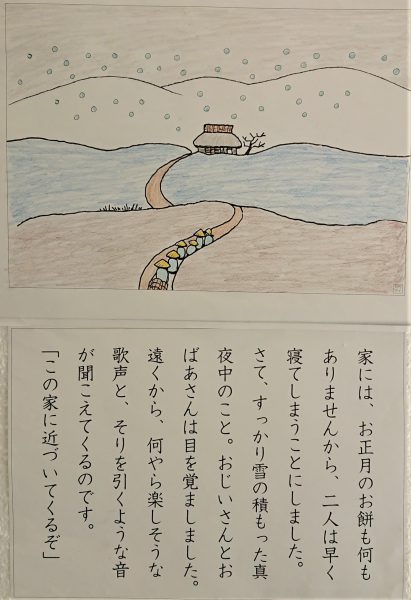 家には、お正月のお餅も何も
ありませんから、二人は早く
寝てしまうことにしました。
さて、すっかり雪の積もった真
夜中のこと。おじいさんとお
ばあさんは目を覚ましました。
遠くから、何やら楽しそうな
歌声と、そりを引くような音
が聞こえてくるのです。
「この家に近づいてくるぞ」